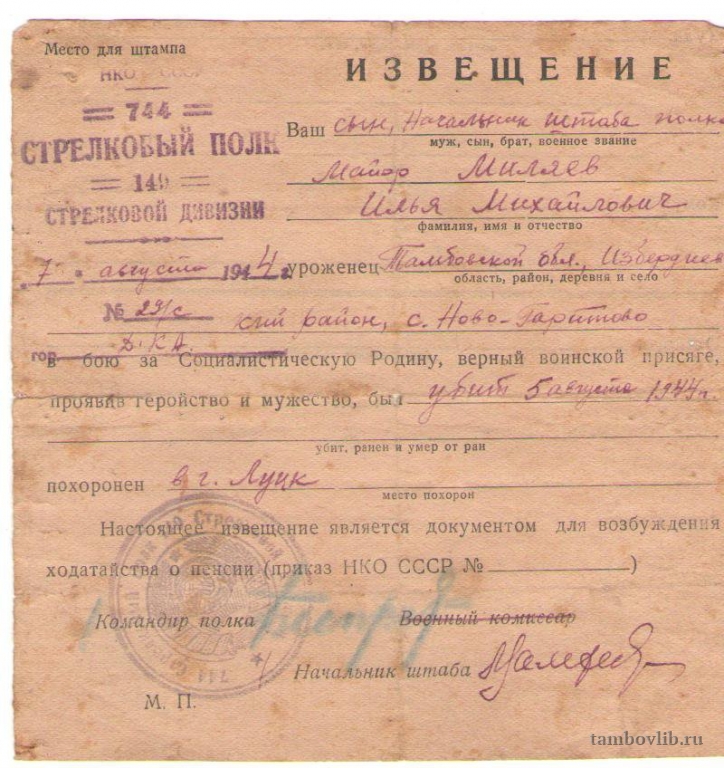 Место для штампа
НКО СССР
744
СТРЕЛКОВЫЙ ПОЛК
149
СТРЕЛКОВОЙ ДИВИЗИИ
"7" августа 1944 г.
№ 291/с
гор. Д.К.А.
ИЗВЕЩЕНИЕ
Ваш сын, Начальник штаба полка
муж, сын, брат, военное звание
Майор Миляев
Илья Михайлович
фамилия, имя и отчество
уроженец Тамбовской обл., Избердеев
область, район, деревня и село
ский район, с. Ново-Гаритово
в бою за Социалистическую Родину, верный воинской присяге,
проявив геройство и мужество, был убит 5 августа 1944 г.
убит, ранен и умер от ран
похоронен в г. Луцк
место похорон
Настоящее извещение является документом для возбуждения
ходатайства о пенсии (приказ НКО СССР № )
Командир полка Военный комиссар
Начальник штаба
М. П.
tambovlib.ru